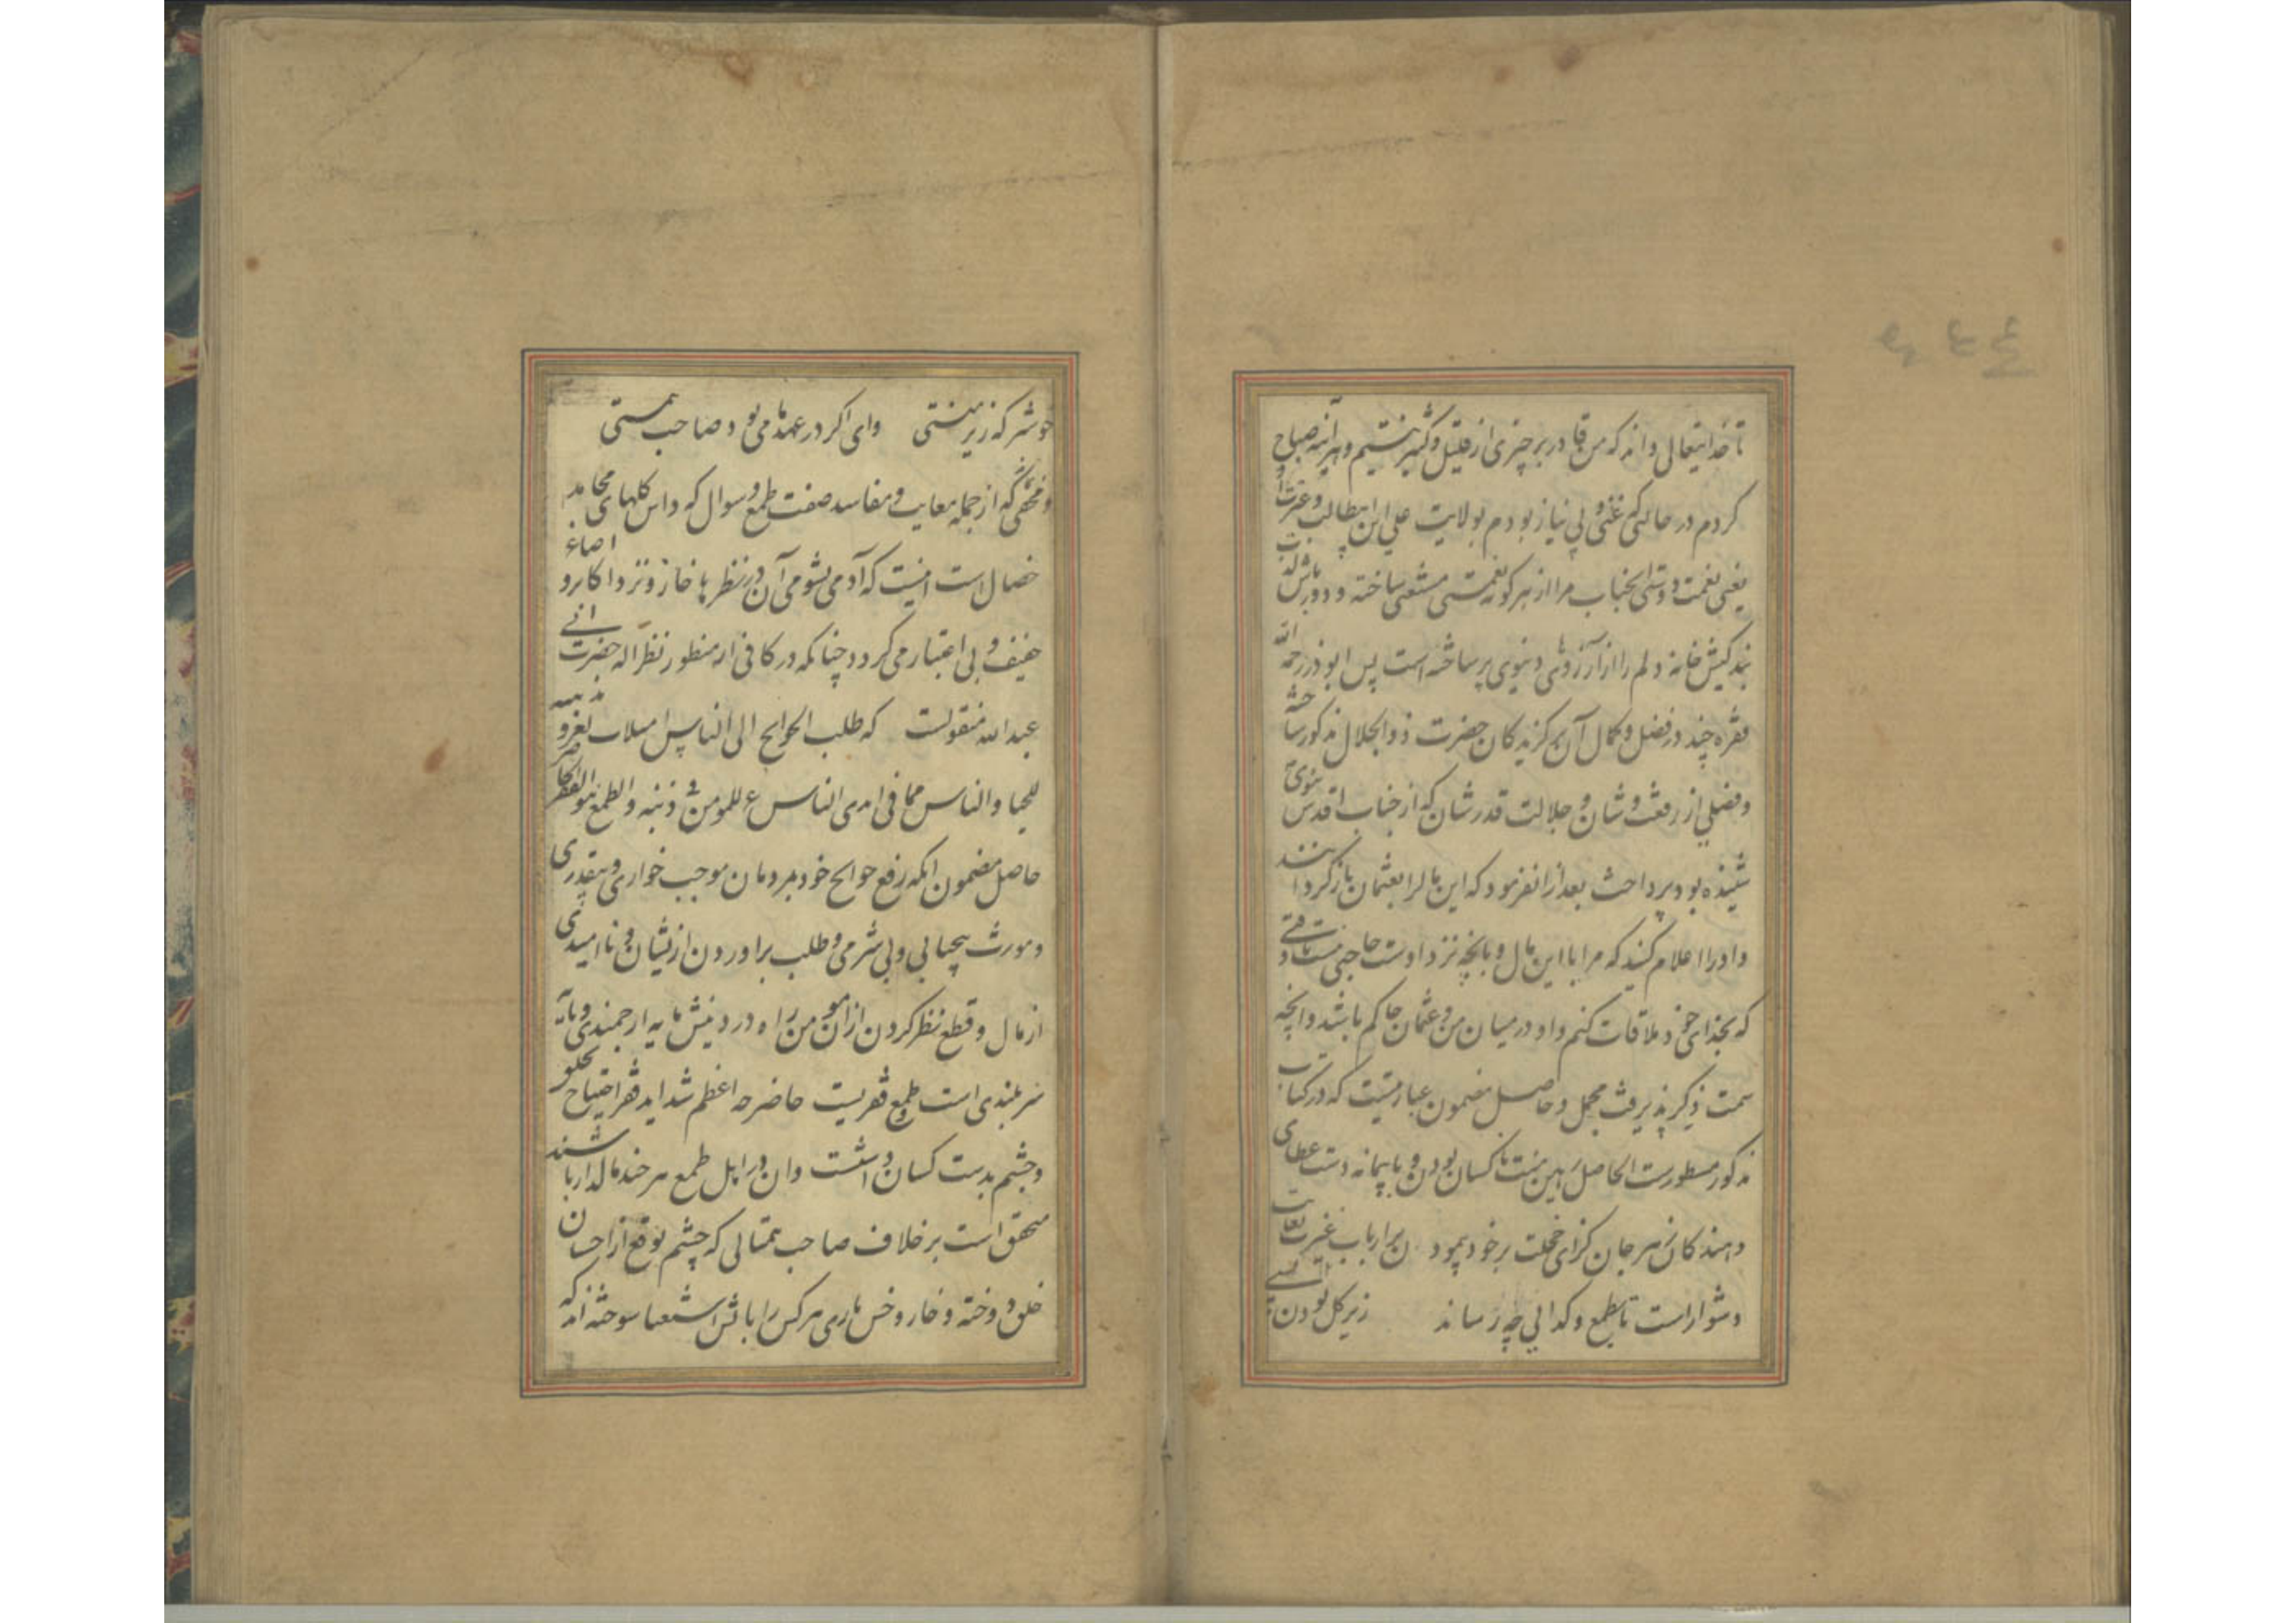 تا خدایتعالی داند که من قادر بر چیزی از قلیل و کثیر نیستم و هر آینه صباح
کردم در حالتی که غنی و بی نیاز بودم بولایت علی ابن ابیطالب و عترت او
یعنی نعمت دوستی انجناب مرا از هر گونه نعمتی مستغنی ساخته و دورباش
بندگیش خانه دلم را از آرزوهای دنیوی پرساخته است پس ابوذر رحمه الله
فقره چند در فضل و کمال آن برگزیدگان حضرت ذوالجلال مذکور ساخته
و فصلی از رفعت و شان و جلالت قدرشان که از جناب اقدس نبوی
شنیده بود پرداخت بعد از ان فرمود که این مال را بعثمان بازگردانند
و او را اعلام کنید که مرا با این مال و بانچه نزد اوست حاجتی نیست تا وقتی
که بخدای خود ملاقات کنم و او در میان من و عثمان حاکم باشد و انچه
سمت ذکر پذیرفت مجمل و حاصل مضمون عبارتیست که در کتاب
مذکور مسطورست الحاصل رهین منت ناکسان بودن و با پیمانه دست عطای
دهندگان زهر جان گزای خجلت بر خود پیمود ن بر ارباب غیرت
دشوار است تا بطمع و گدائی چه رساند زیر گل بودن
خوشتر که زیر منتی وای اگر در عهد ما می بود صاحب همتی
و مخفی نماند که از جمله معایب و مفاسد صفت طمع و سوال که داس گلهای محامد
خصال است اینست که آدمی بشومی آن در نظرها خار و نزد اکابر و اصاغر
خفیف و بی اعتبار می گردد چنانکه در کافی از منظور نظر اله حضرت ابی
عبدالله منقولست که طلب الحوایج الی الناس استلاب لعز و مذهبه
للحیا و الیاس مما فی ایدی الناس عز للمومن فی دینه و الطمع هو الفقر الحاضر
حاصل مضمون انکه رفع حوایج خود بمردمان موجب خواری و بیقدری
و مورث بیحیائی و بی شرمی و طلب براوردن از یشان و ناامیدی
از مال و قطع نظر کردن از اموال من راه در دینش مایه ارجمندی و مایه
سربلندی است و طمع فقریست حاضر چه اعظم شداید فقر احتیاج بخلق
و چشم بدست کسان داشتن است و ان در اهل طمع هر چند مالدار باشند
متحقق است بر خلاف صاحب همتانی که چشم توقع از احسان
خلق دوخته و خار و خس یاری هر کس را باتش استغنا سوخته اند که